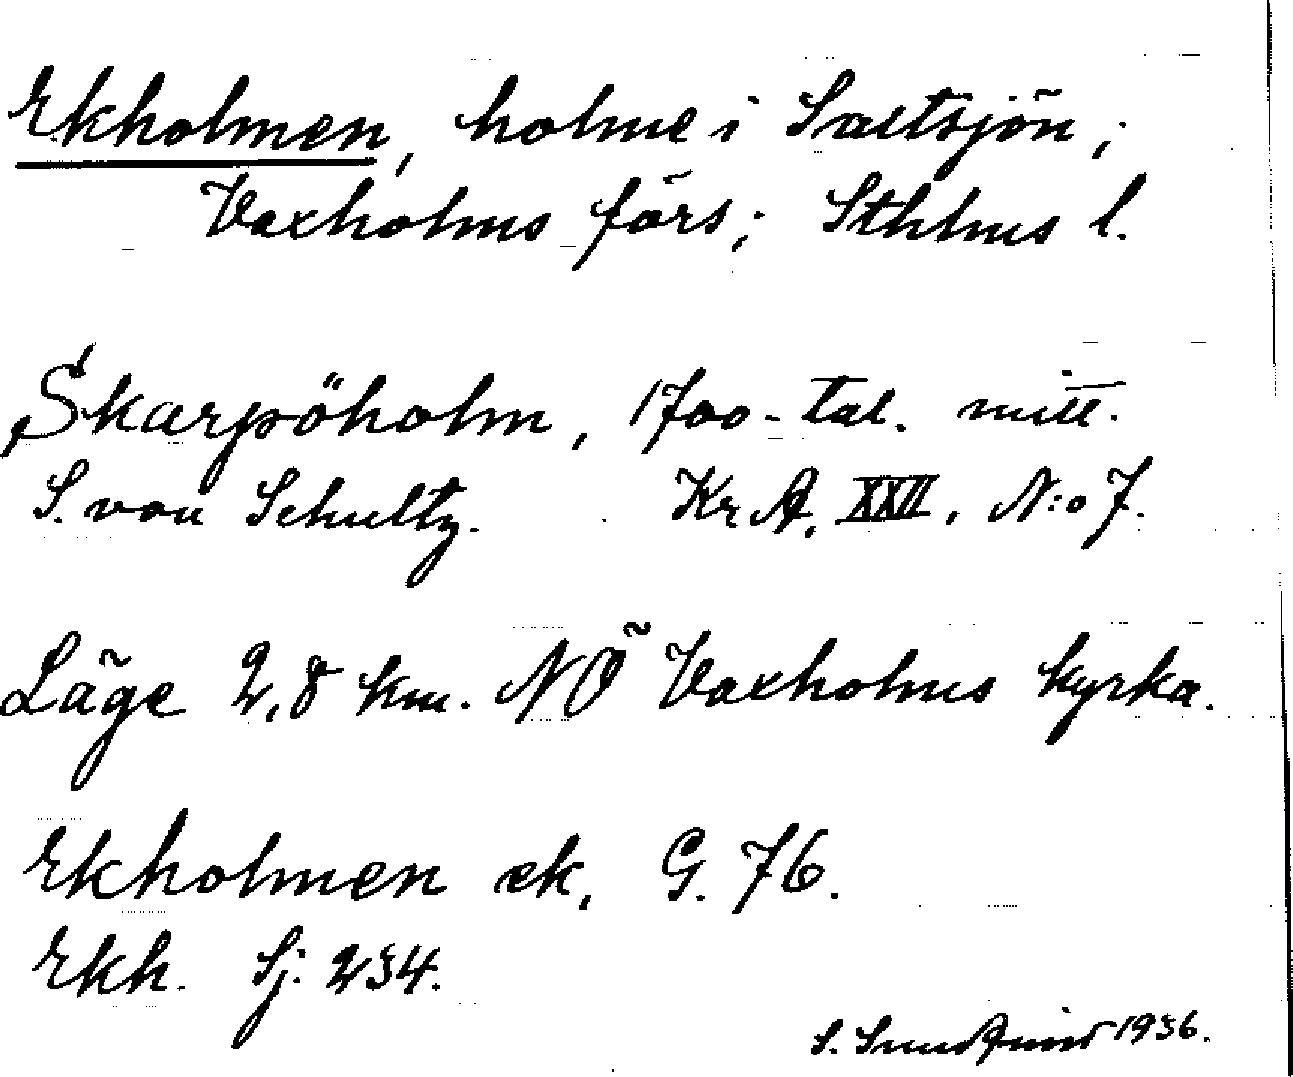 Ekholmen, holme i Saltsjön;
Vaxholms förs; Sthlms l.
Skarpöholm, 1700-tal. mitt.
S. von Schultz. Kr A, XXII, N:o 7.
Läge 2,8 km. NÖ Vaxholms kyrka.
Ekholmen ek, G. 76.
Ekh. Sj. 234.
S. 1936.